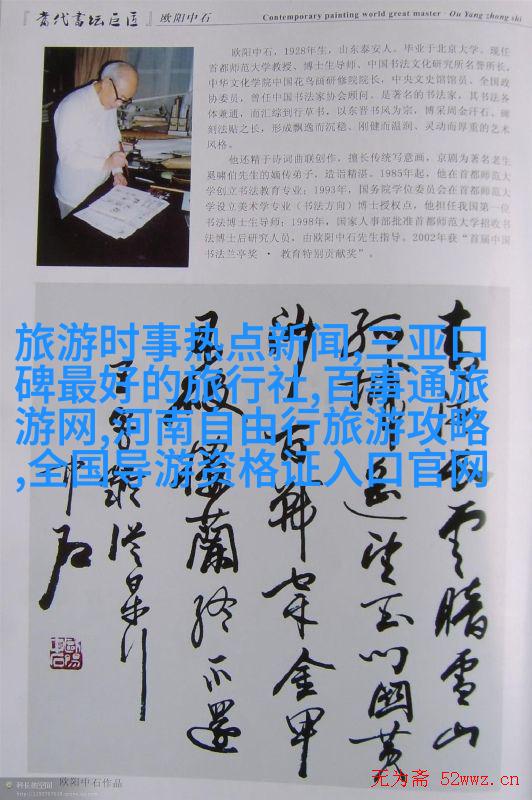 『當代书坛巨匠』 欧阳中石 Contemporary painting world great master · Ou Yang zhong shi
欧阳中石,1928年生,山东泰安人。毕业于北京大学。现任
首都师范大学教授、博士生导师、中国书法文化研究所名誉所长,
中华文化学院中国花鸟画研修院院长,中央文史馆馆员、全国政
协委员,曾任中国书法家协会顾问。是著名的书法家,其书法各
体兼通,而汇综到行草书,以东晋书风为宗,博采周金汗石、碑
刻法贴之长,形成飘逸而沉稳、刚健而温润、灵动而厚重的艺术
风格。
他还精于诗词曲联创作,擅长传统写意画,京剧为著名老生
奚啸伯先生的嫡传弟子,造诣精湛。1985年起,他在首都师范大
学创立书法教育专业;1993年,国务院学位委员会在首都师范大
学设立美术学专业(书法方向)博士授权点,他担任我国第一位
书法博士生导师;1998年,国家人事部批准首都师范大学招收书
法博士后研究人员,由欧阳中石先生指导。2002年获“首届中国
书法兰亭奖 · 教育特别贡献奖”。
旅游时事热点新闻,三亚口
碑最好的旅行社,百事通旅
游网,河南自由行旅游攻略
,全国导游资格证入口官网
青海长云暗雪山
孤城遥望玉门关黄
沙百战穿金甲
不破楼兰终不还
王昌龄从军行
中石
欧阳中石作品
无为斋 52wwz.cn